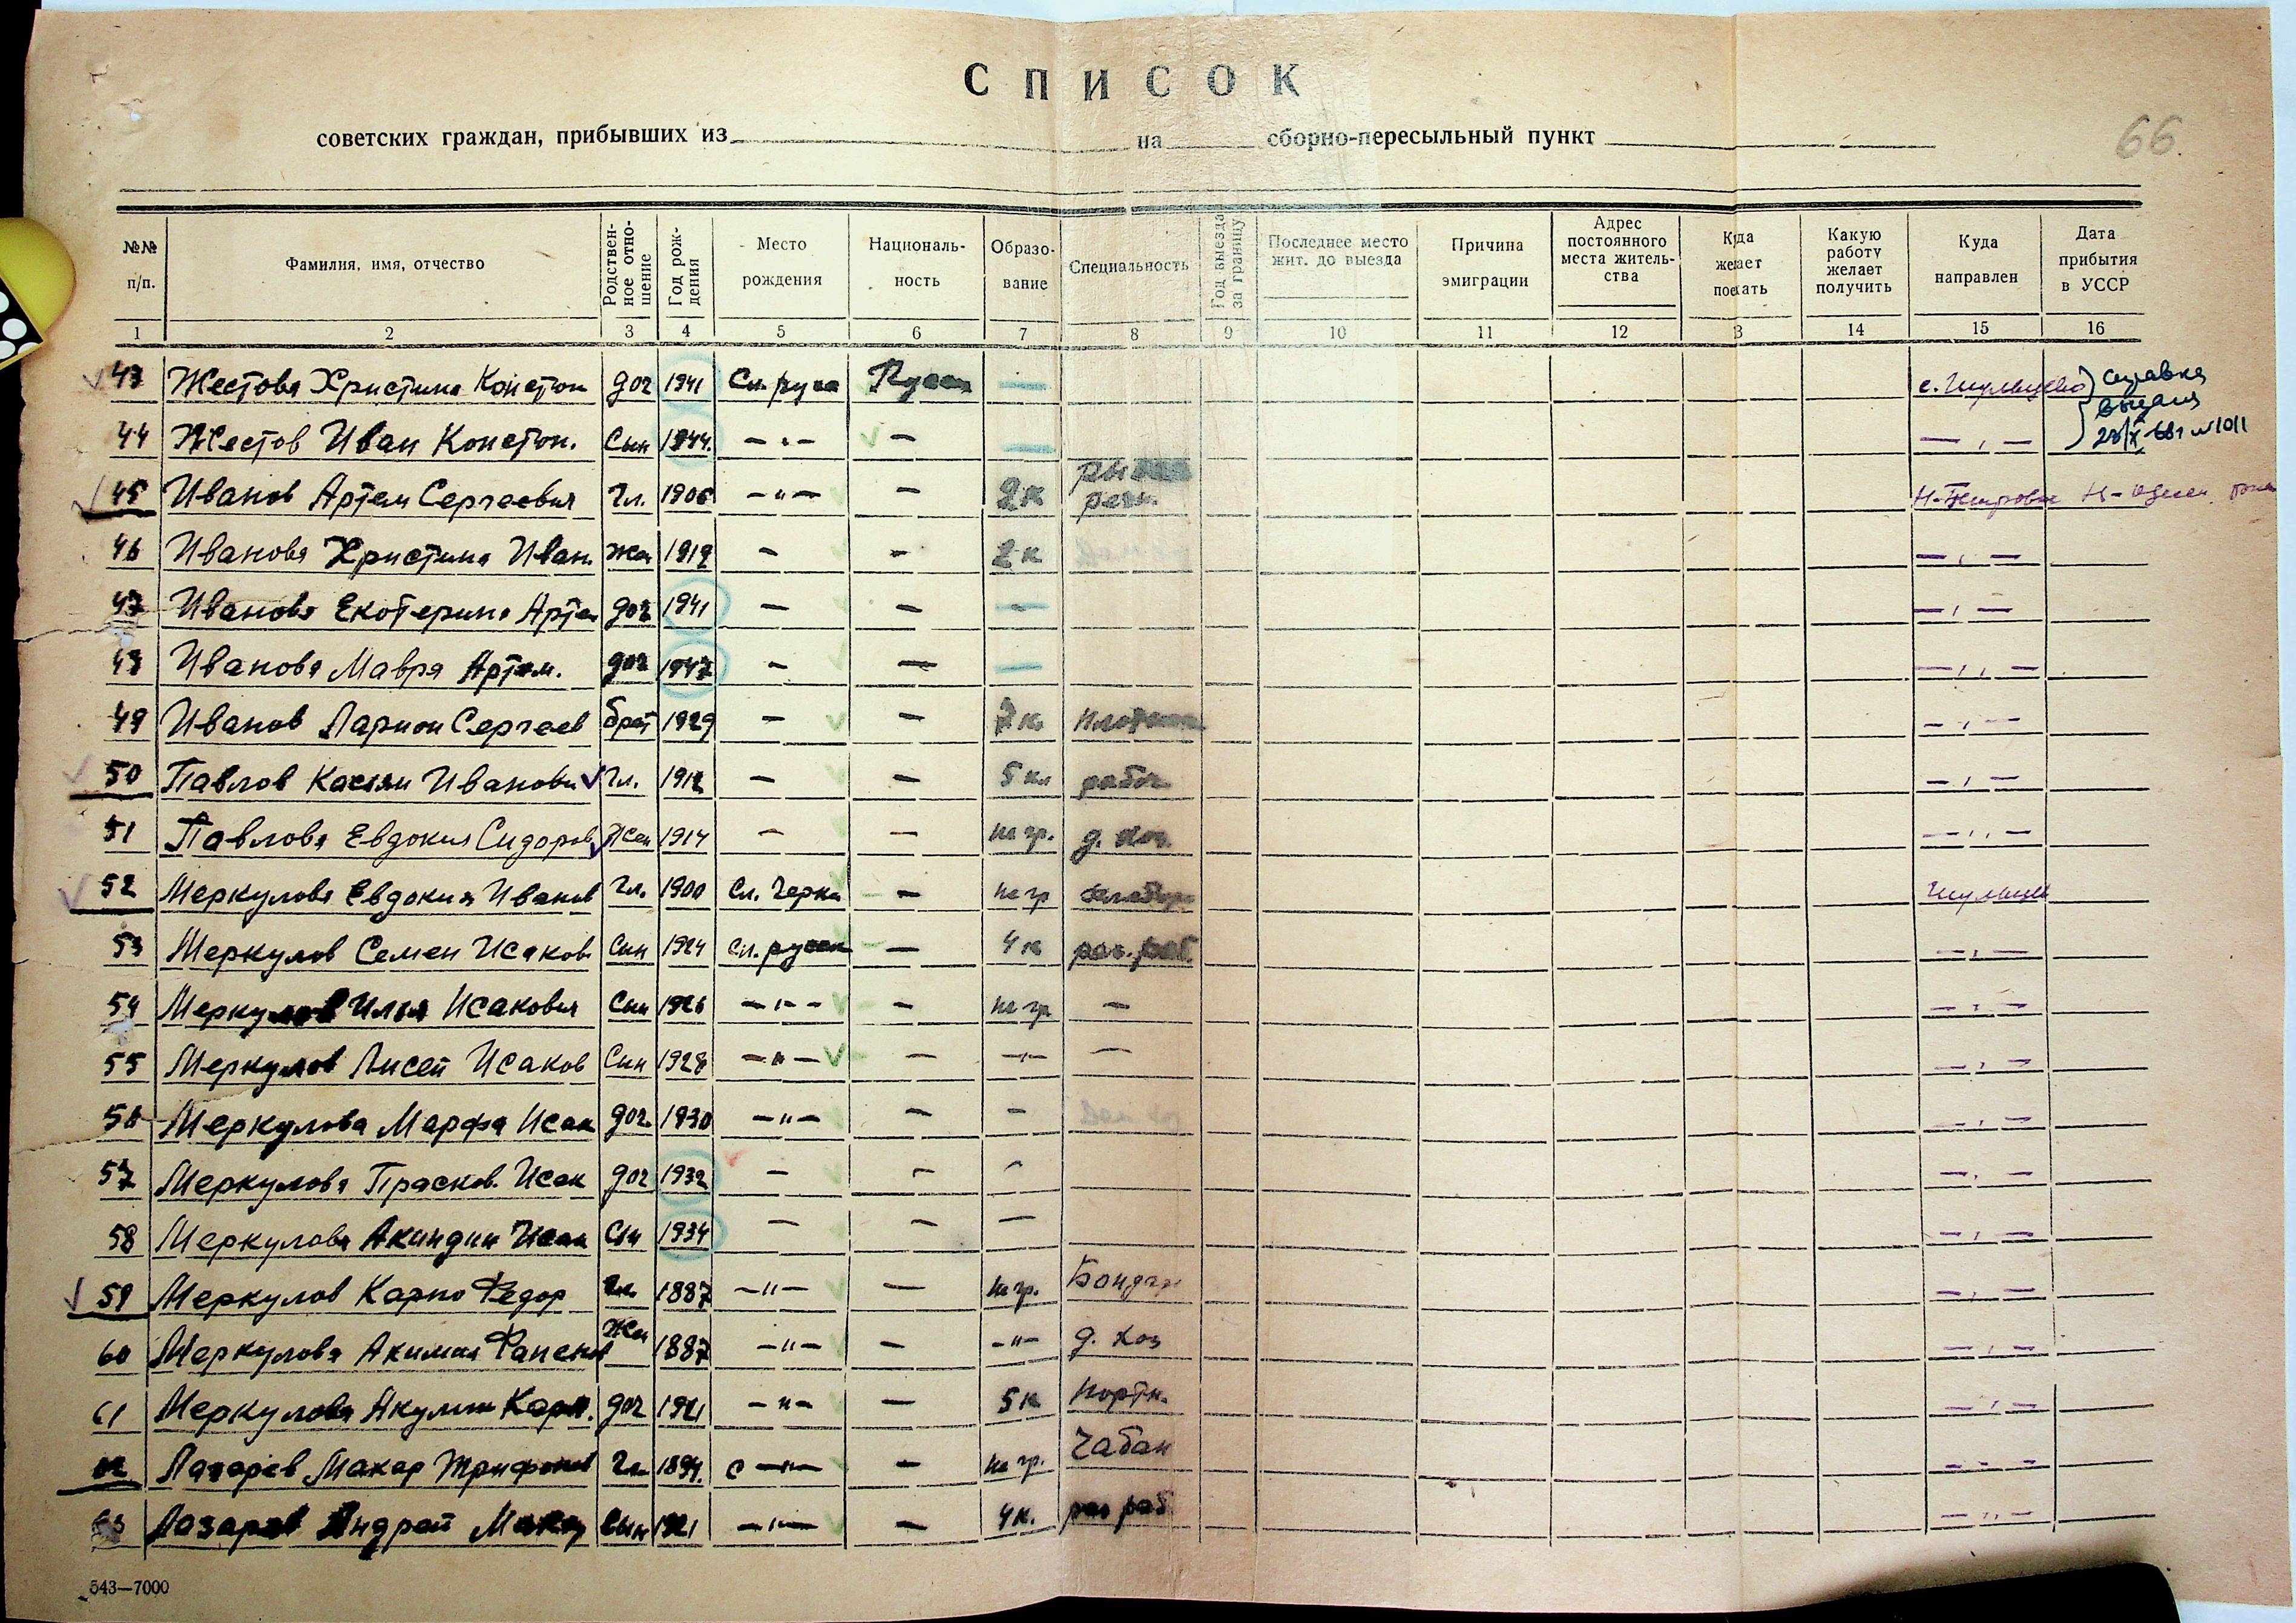 СПИСОК
советских граждан, прибывших из на сборно-пересыльный пункт
66
№№ п/п. Фамилия, имя, отчество Родствен-ное отно-шение Год рож-дения Место рождения Националь-ность Образо-вание Специальность Год выезда за границу Последнее место жит. до выезда Причина эмиграции Адрес постоянного места житель-ства Куда желает поехать Какую работу желает получить Куда направлен Дата прибытия в УССР
1 2 3 4 5 6 7 8 9 10 11 12 3 14 15 16
43 Жестова Христина Констан доч 1941 Сл. руса Русск — справка
44 Жестов Иван Констан. Сын 1944. — " — — — — " —
45 Иванов Артем Сергеевич Гл. 1906 — " — — 2к
46 Иванова Христина Иван. Жен 1919 — — 2к — " —
47 Иванова Екатерина Артем доч 1941 — — — — " —
48 Иванова Мавра Артем. доч 1947 — — — — " —
49 Иванов Ларион Сергеев брат 1929 — — — " —
50 Павлов Касьян Иванови Гл. 1912 — — 5 кл рабоч — " —
51 Павлова Евдокия Сидоров Жен 1914 — — негр. д. хоз. — " —
52 Меркулова Евдокия Иванов Гл. 1900 Сл. Черки — негр
53 Меркулов Семен Исаков Сын 1924 Сл. русск — 4к раз. раб. — " —
54 Меркулов Илья Исакович Сын 1926 — " — — негр — — " —
55 Меркулов Лисей Исаков Сын 1928 — " — — — " — — — " —
56 Меркулова Марфа Исак доч 1930 — " — — — — " —
57 Меркулова Прасков. Исак доч 1932 — — — — " —
58 Меркулова Акиндин Исак Сын 1934 — — — — " —
59 Меркулов Карпо Федор Гл. 1887 — " — — негр. Бондарь — " —
60 Меркулова Акимия Жен 1887 — " — — — " — д. хоз — " —
61 Меркулова Акулин Карп. доч 1921 — " — — 5к портн. — " —
62 Лазарев Макар Трифонов Гл. 1894. с — " — — негр. Чабан — " —
63 Лазарев Андрей Макар Сын 1921 — " — — 4к. раз раб — " —
543—7000